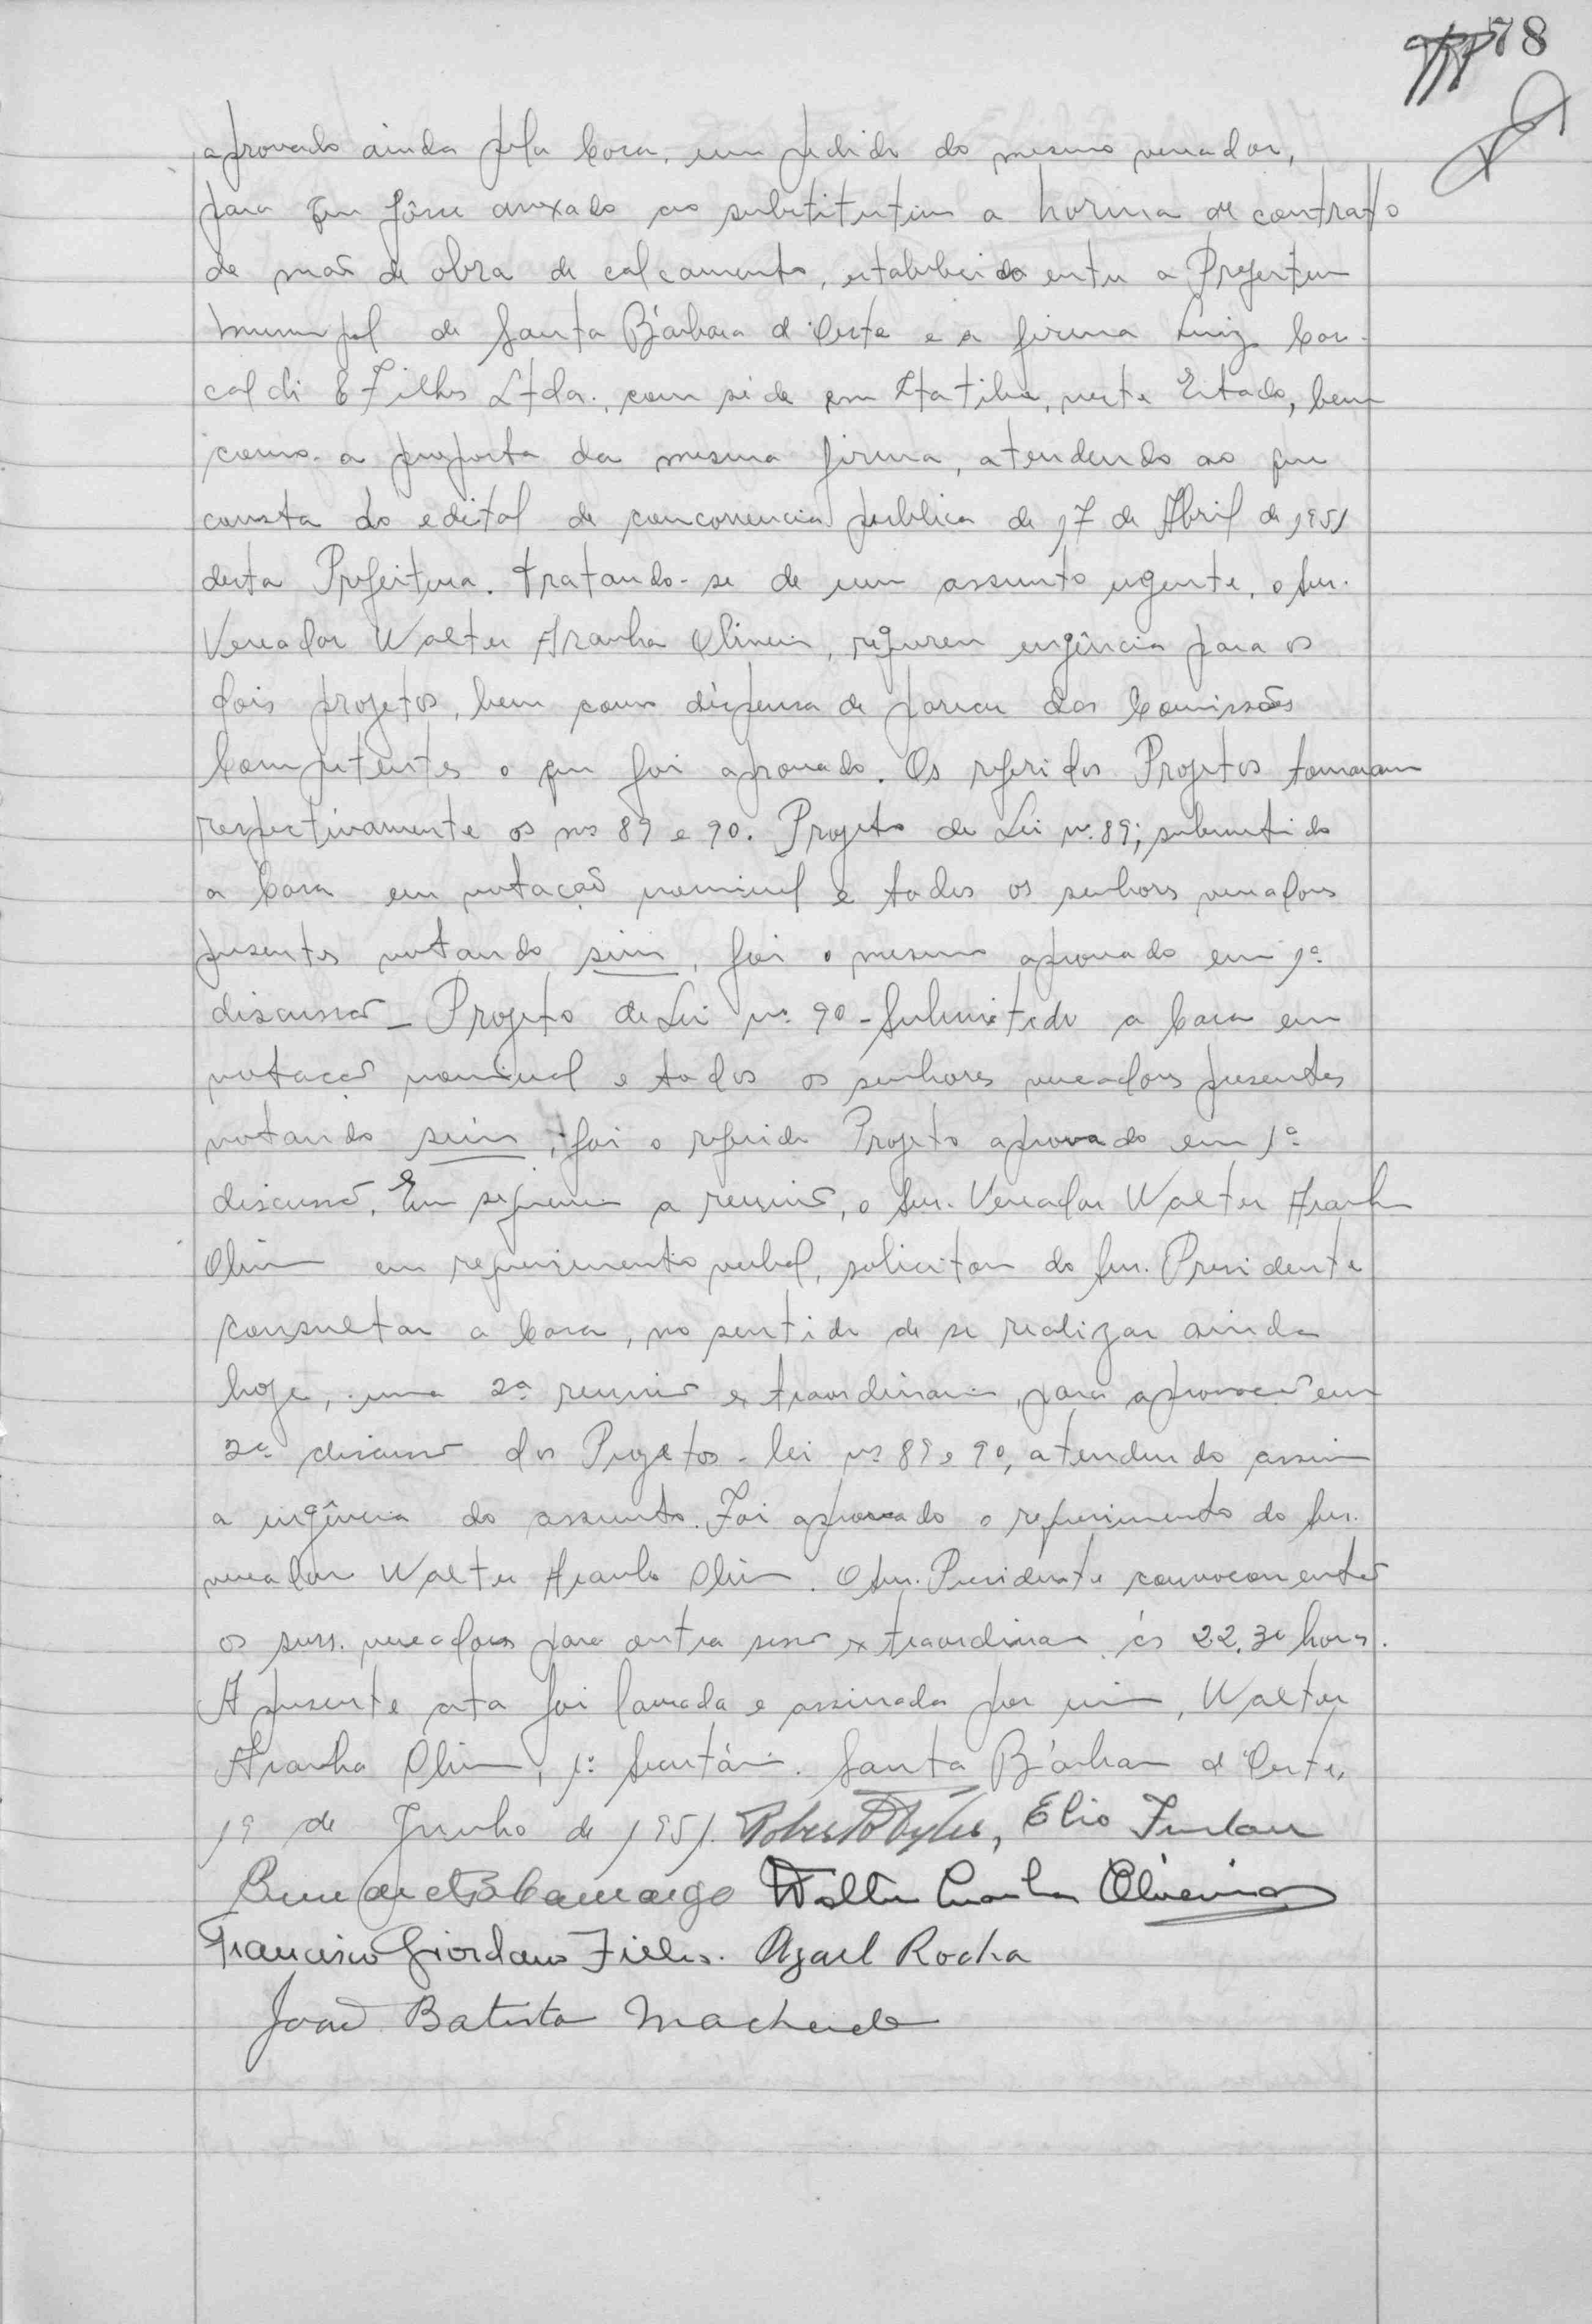 78
aprovado ainda pela Casa, um pedido do mesmo vereador,
para que fôsse anexado ao substitutivo a norma de contrato
de mão de obra de calçamento, estabelecido entre a Prefeitura
Municipal de Santa Bárbara d'Oeste e a firma Luiz
& Filhos Ltda., com séde em Itatiba, neste Estado, bem
como a proposta da mesma firma, atendendo ao que
consta do edital de concorrencia publica de 17 de Abril de 1951
desta Prefeitura. Tratando-se de um assunto urgente, o snr.
Vereador Walter Aranha Oliveira, requereu urgência para os
dois projetos, bem como dispensa de parecer das Comissões
Competentes o que foi aprovado. Os referidos Projetos tomaram
respectivamente os nos 89 e 90. Projeto de Lei nº 89; submetido
a Casa em votação nominal e todos os senhores vereadores
presentes votando sim, foi o mesmo aprovado em 1ª
discussão - Projeto de Lei nº 90 - Submetido a Casa em
votação nominal e todos os senhores vereadores presentes
votando sim, foi o referido Projeto aprovado em 1ª
discussão. Em seguencia a reunião, o snr. Vereador Walter Aranha
Oliveira em requerimento verbal, solicitou do snr. Presidente
consultar a Casa, no sentido de se realizar ainda
hoje, uma 2ª reunião extraordinaria, para aprovação em
2ª discussão dos Projetos-lei nos 89 e 90, atendendo assim
a urgência do assunto. Foi aprovado o requerimento do snr.
vereador Walter Aranha Oliveira. O snr. Presidente convocou então
os snrs. vereadores para outra sessão extraordinaria ás 22,30 horas.
A presente ata foi lavrada e assinada por mim, Walter
Aranha Oliveira, 1º Secretário. Santa Bárbara d'Oeste,
19 de Junho de 1951. Elio Furlan
Camargo Walter Aranha Oliveira
Francisco Giordano Filho. Azael Rocha
João Batista Machado